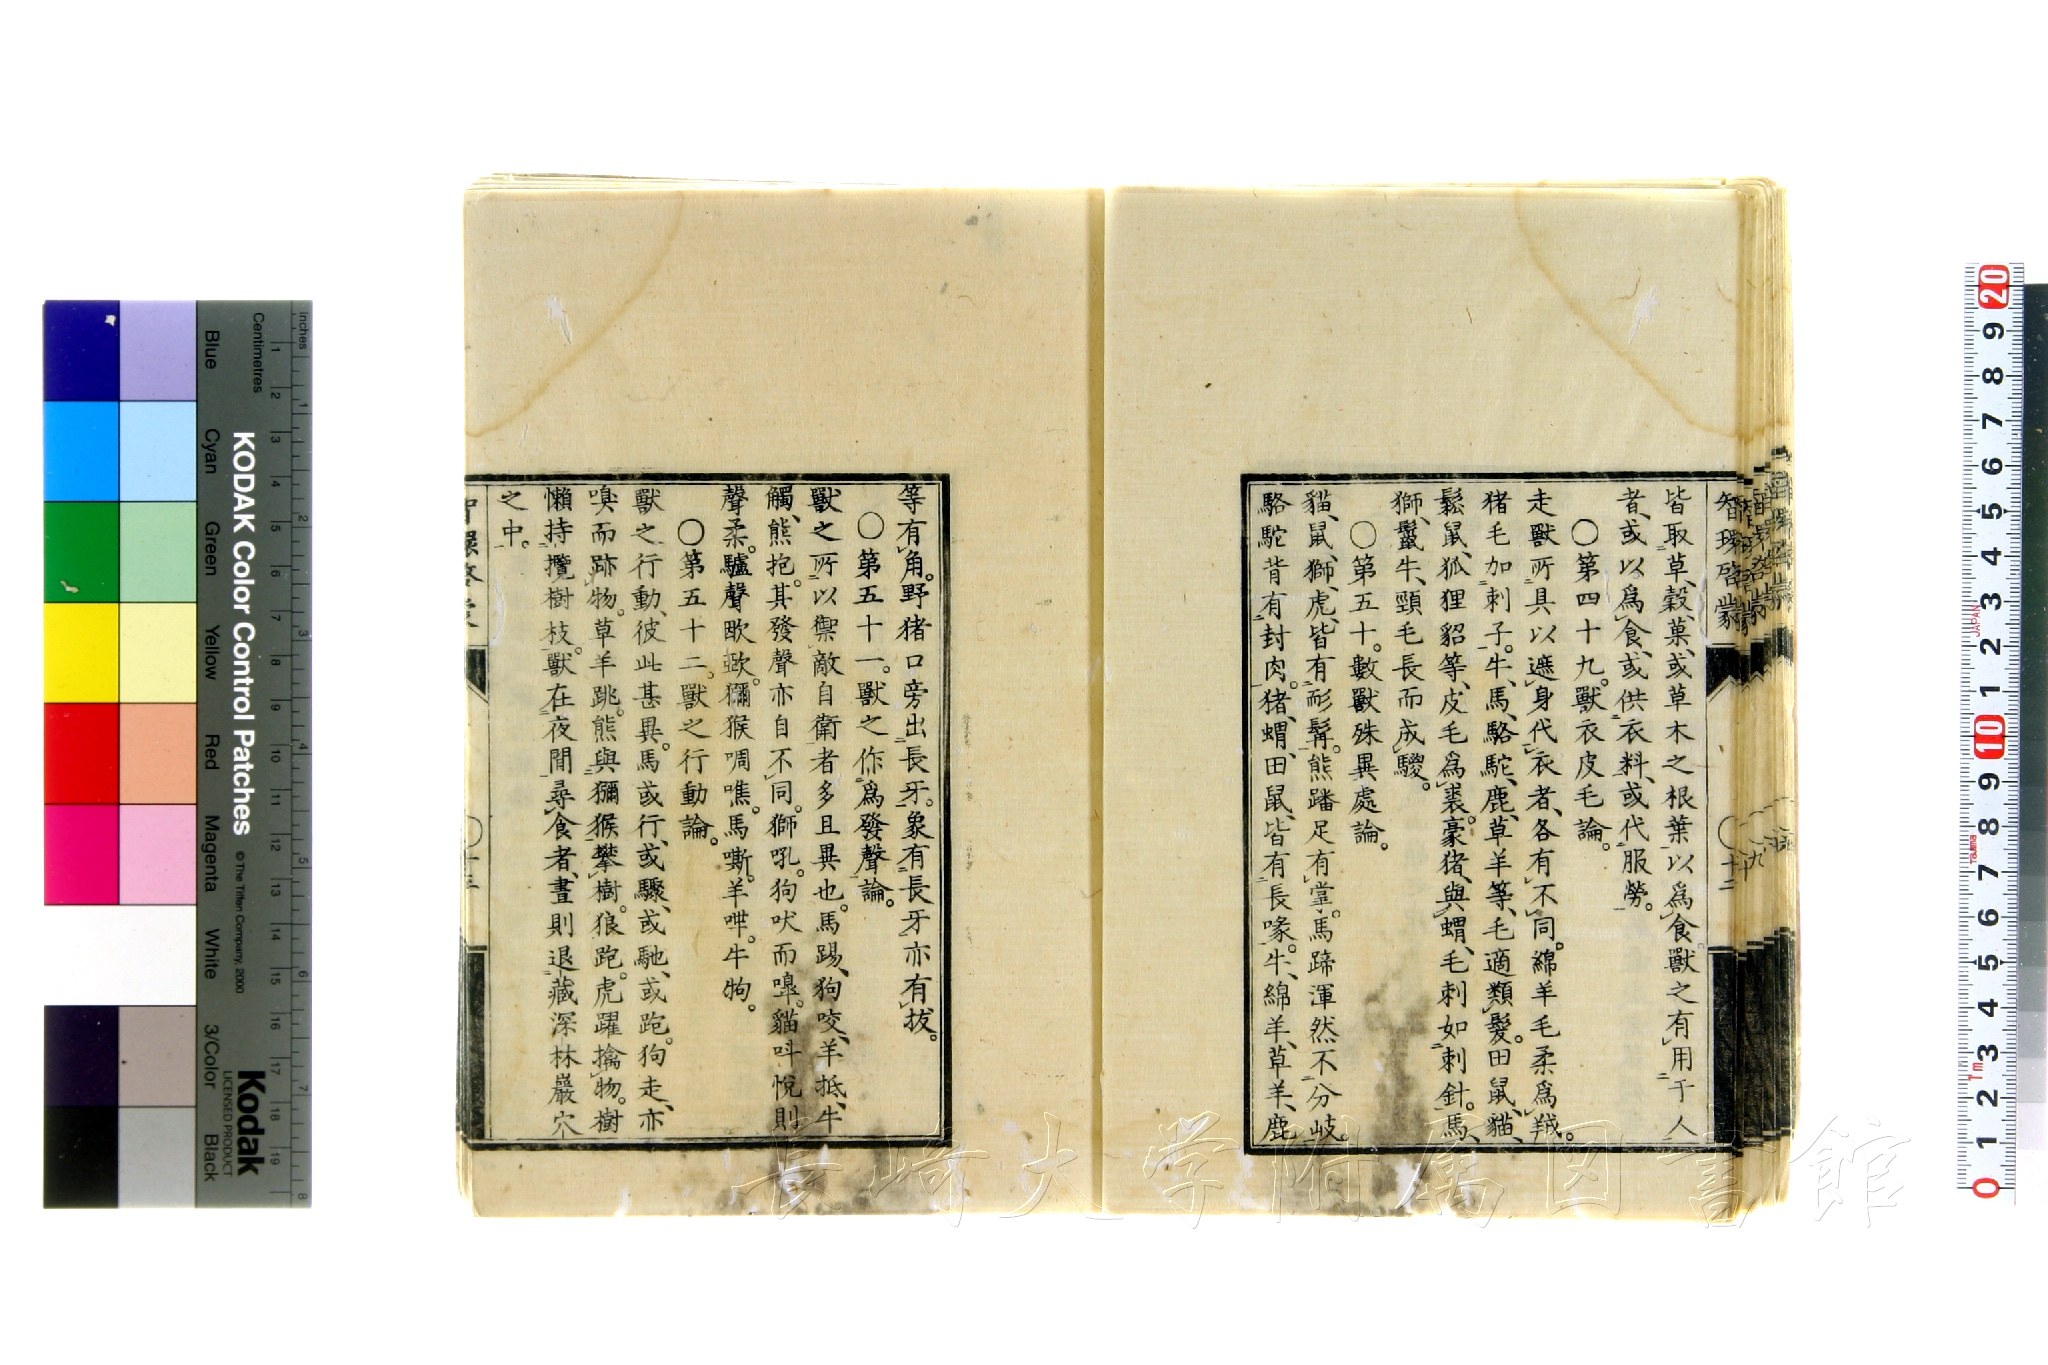 智環啓蒙
十二
皆取草、穀、菓、或草木之根葉以爲食。獸之有用于人
者、或以爲食、或供衣料、或代服勞。
〇第四十九。獸衣皮毛論。
走獸所具以遮身代衣者、各有不同。綿羊毛柔爲羢。
猪毛加刺子。牛、馬、駱駝、鹿、草羊等、毛適類髮。田鼠、貓、
鬆鼠、狐狸貂等、皮毛爲裘。豪猪與蝟、毛刺如刺針。馬、
獅、犛牛、頸毛長而成騣。
〇第五十。數獸殊異處論。
貓、鼠、獅、虎、皆有耏髯。熊蹯足有掌。馬蹄渾然不分岐。
駱駝背有封肉。猪、蝟、田鼠、皆有長喙。牛、綿羊、草羊、鹿
等有角。野猪口旁出長牙。象有長牙亦有拔。
〇第五十一。獸之作爲發聲論。
獸之所以禦敵自衛者多且異也。馬踢、狗咬、羊抵、牛
觸、熊抱。其發聲亦自不同。獅吼。狗吠而嘷。貓呌悅則
聲柔。驢聲歐歘。獼猴啁噍。馬嘶。羊哶。牛㸸。
〇第五十二。獸之行動論。
獸之行動、彼此甚異。馬或行、或驟、或馳、或跑。狗走、亦
嗅而跡物。草羊跳。熊與獼猴攀樹。狼跑。虎躍擒物。樹
懶持攬樹枝。獸在夜間尋食者、晝則退藏深林巖穴
之中。
KODAK Color Control Patches
© The Tiffen Company, 2000
Kodak
LICENSED PRODUCT
Inches
Centimetres
Blue
Cyan
Green
Yellow
Red
Magenta
White
3/Color
Black
長崎大学附属図書館